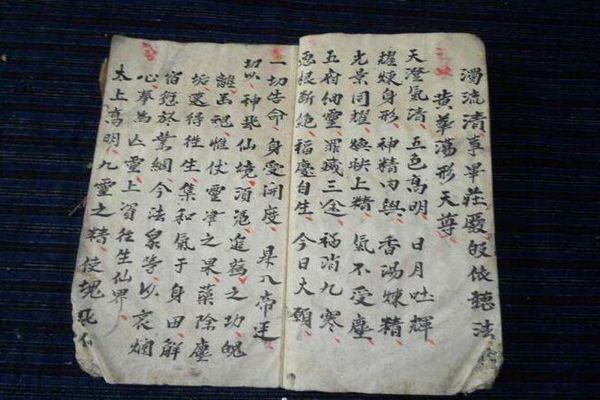 濁流清享畢莊嚴皈依聽法
黃華蕩形天尊
天澄氣清　五色高明　日月吐輝
灌煉身形　神精內與　香湯煉精
光景同耀　映上精　氣不受塵
五府納靈　罪滅三途　禍消九寒
惡根斷絕　福慶自生　今日大願
一切告命　身受開度　昇入帝廷
切以　神飛仙境　須憑進薦之功　魄
離玉冠　惟仗靈津之果　藥除塵
垢　還得性生　集和氣于身田　解
宿愆於業網　今法眾等　以哀憫
心　奉為亡靈　上資往生仙界
太上高明　九靈之精　使魂